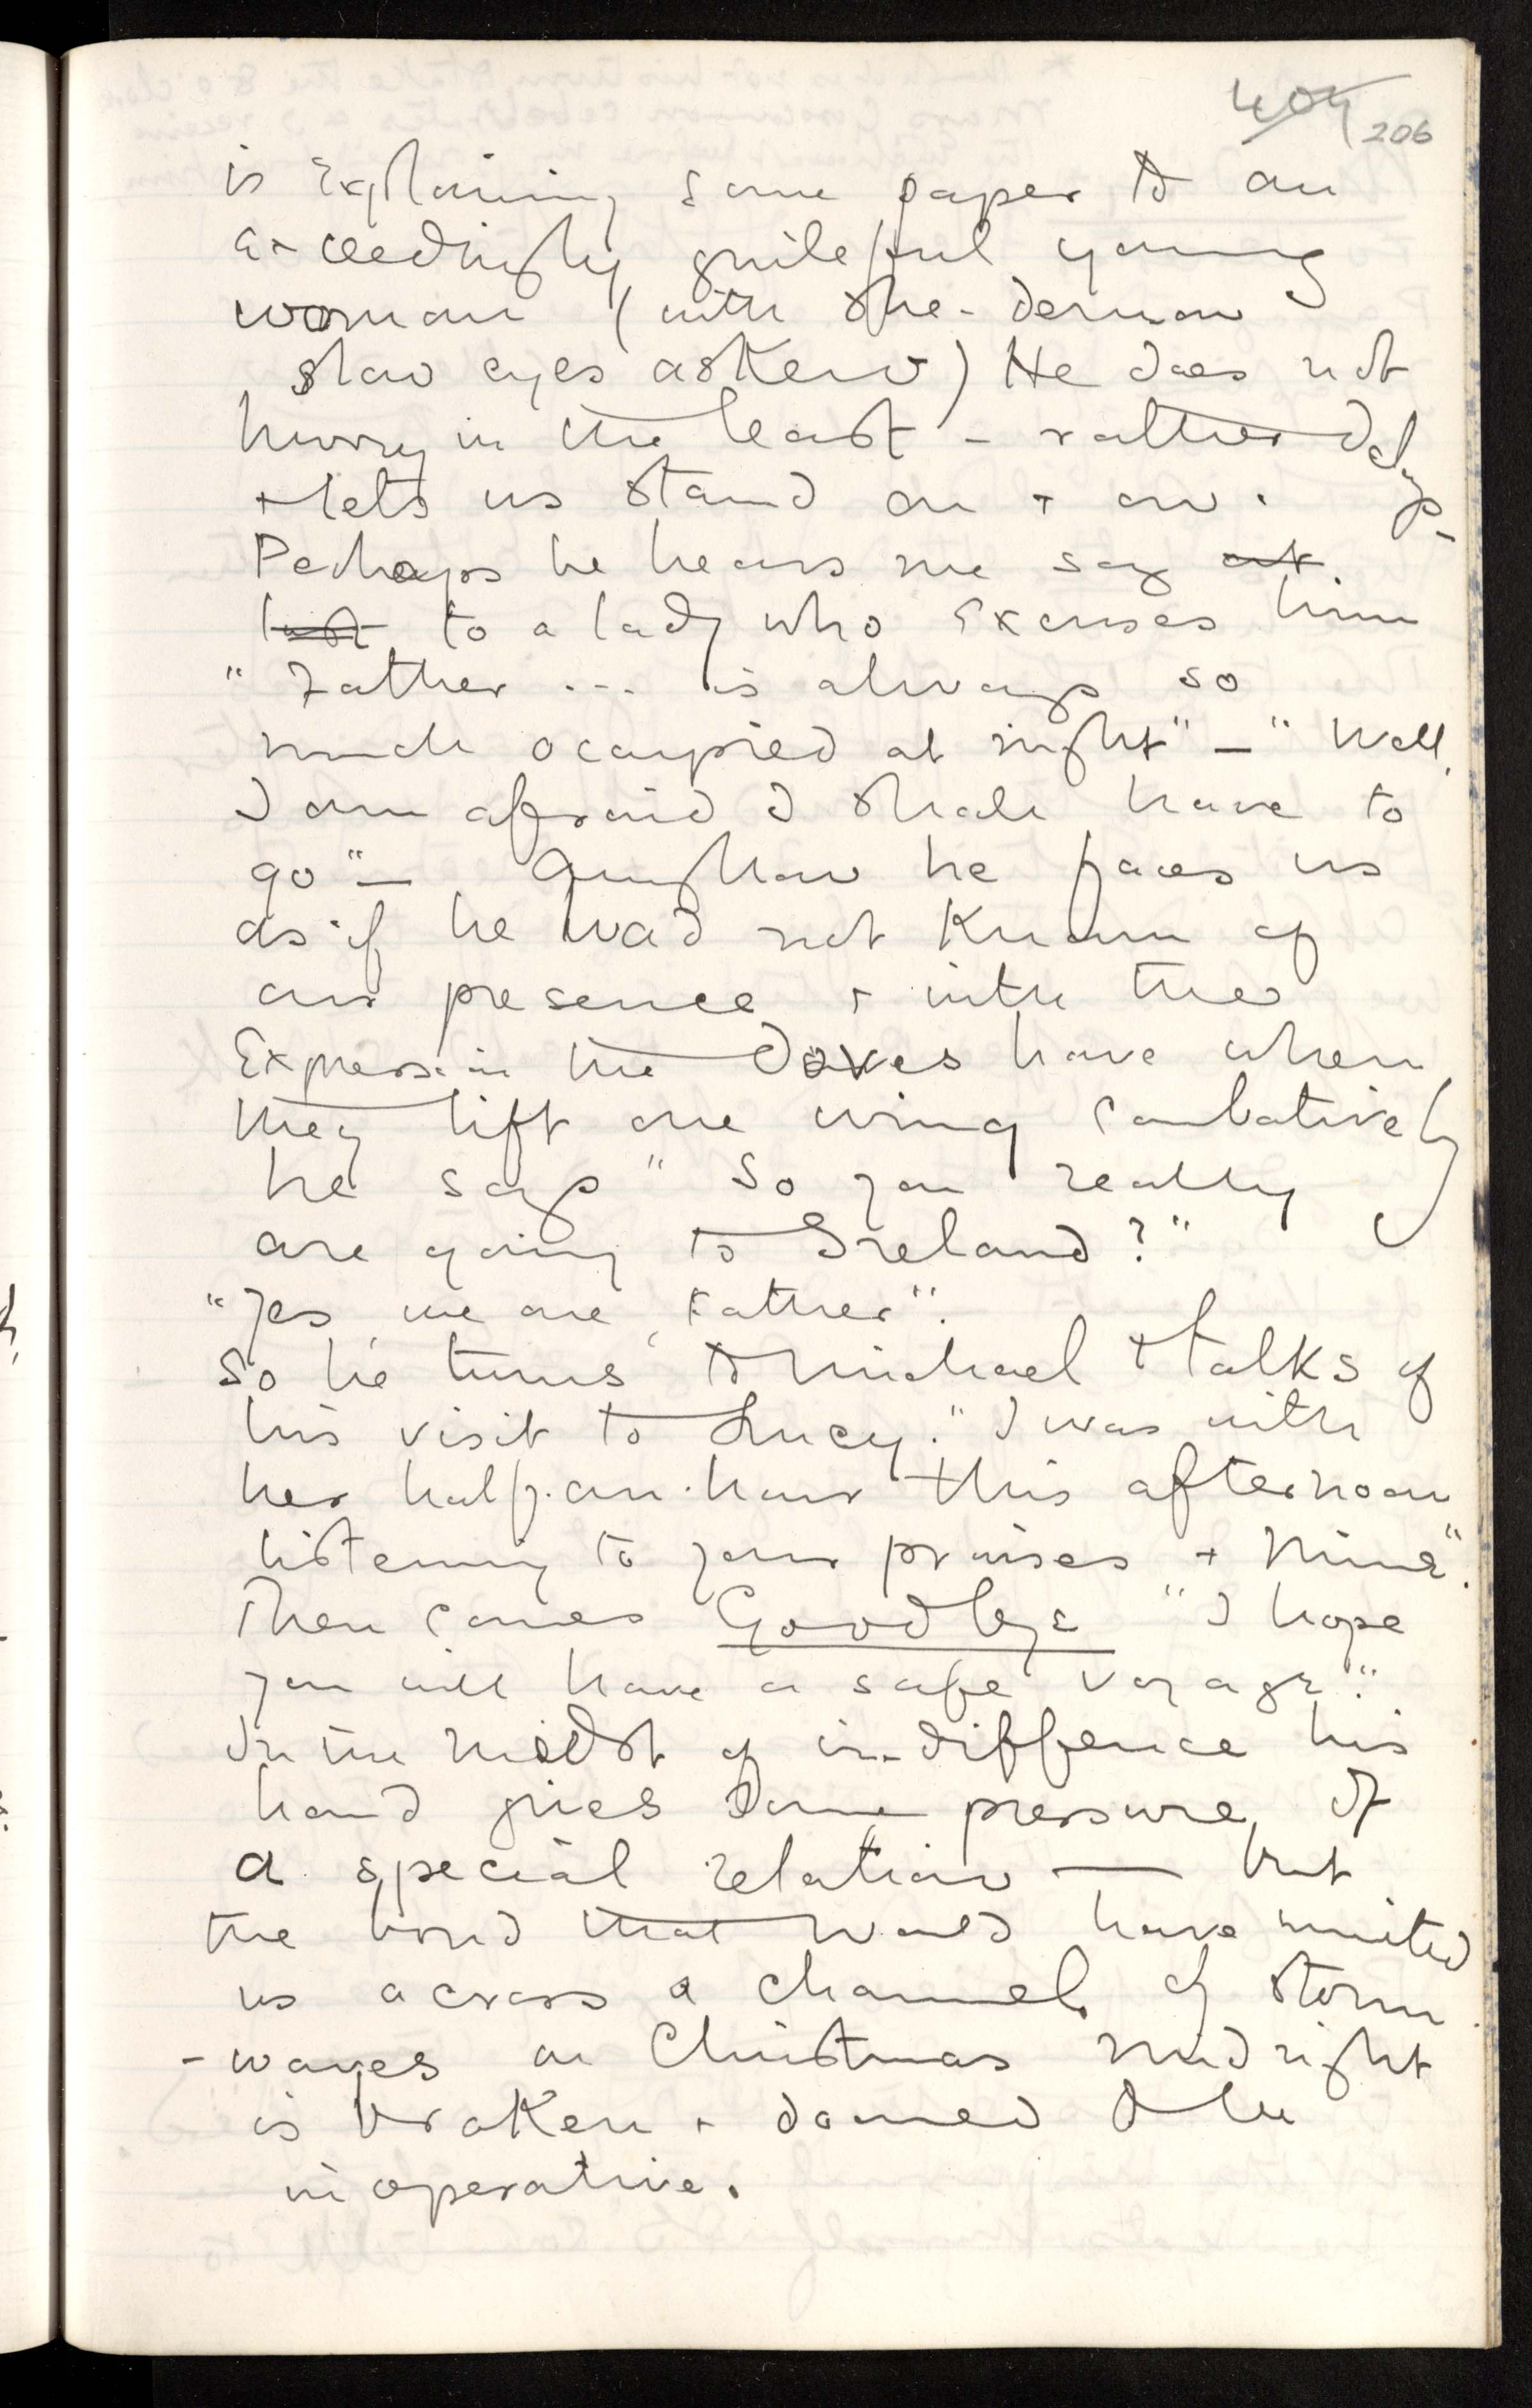 404 206
is explaining some paper to an
exceedingly guileful young
woman (with she-demon
slow eyes askew) He does not
hurry in the least - rather delays -
+ lets us stand on + on.
Perhaps he hears me say at
last to a lady who excuses him
"Father ... is always so
much ocupied at night" — "Well,
I am afraid I shall have to
go" — Anyhow he faces us
as if he had not known of
our presence + with the
expression the doves have when
they lift one wing combatively
he says "So you really
are going to Ireland?"
"Yes, we are, Father".
So he turns to Michael + talks of
his visit to Lucy. "I was with
her half-an-hour this afternoon
listening to your praises + mine".
Then comes Goodbye "I hope
you will have a safe voyage."
In the midst of in-diffence his
hand gives some pressure of
a special relation — but
the bond that would have united
us across a channel of storm
- waves on Christmas midnight
is broken + doomed to be
inoperative.